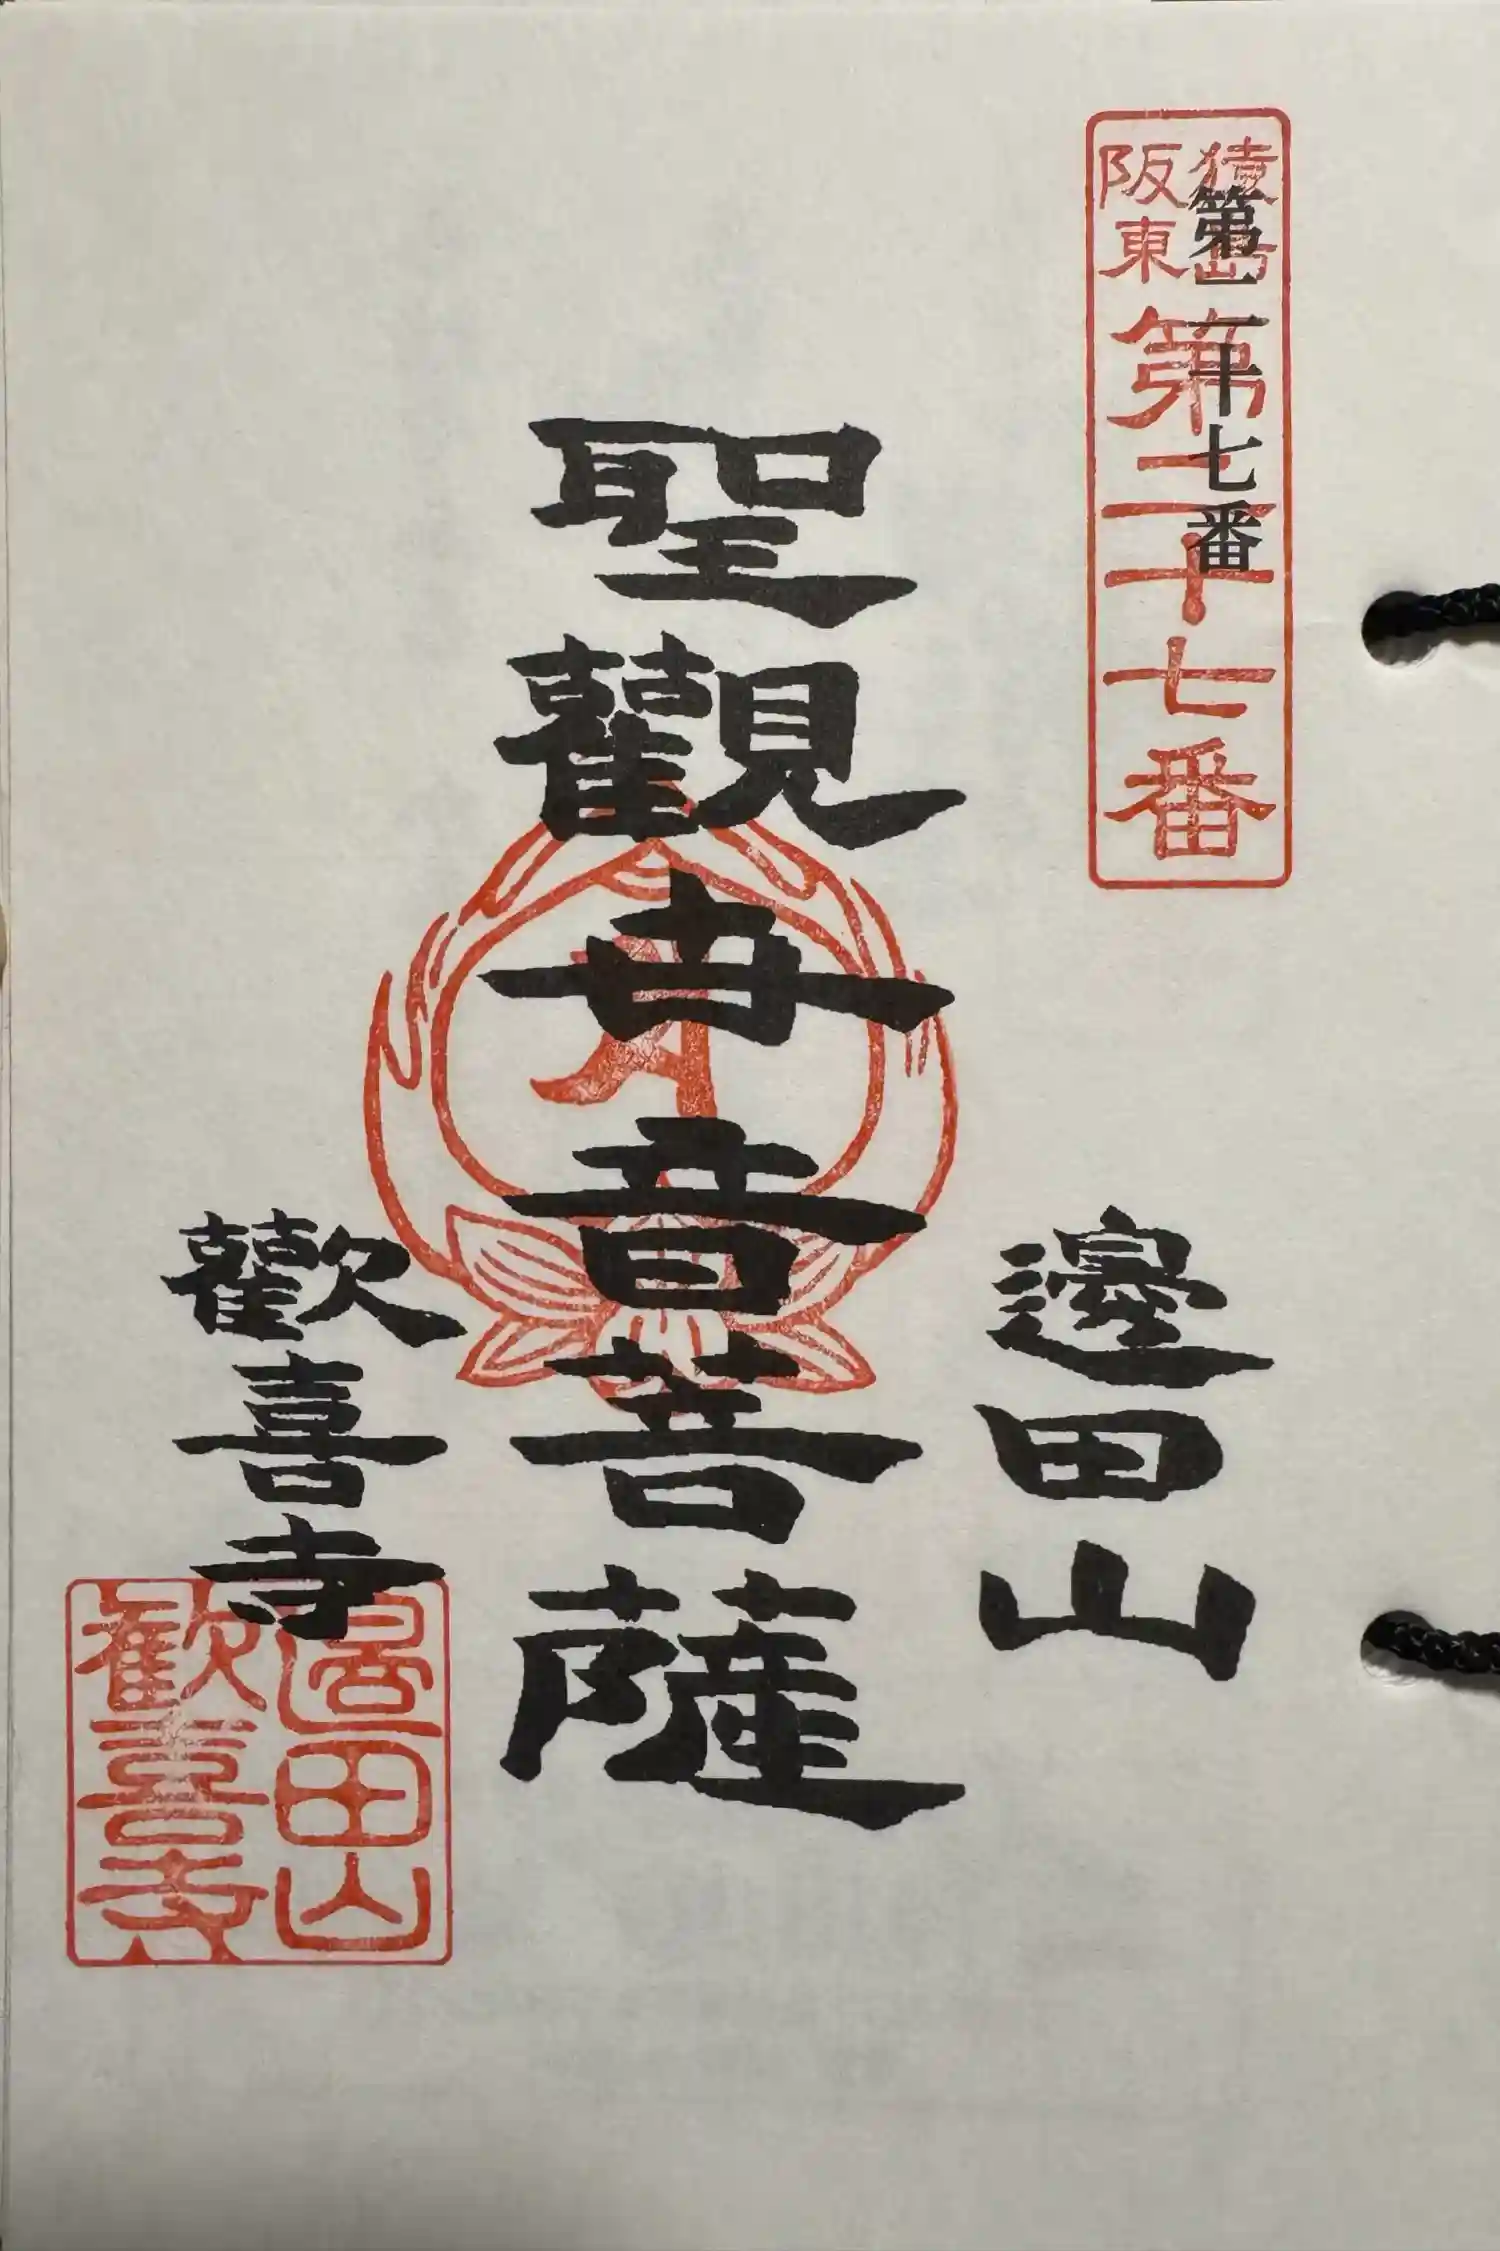 第二十七番
猿島
阪東
第二十七番
邊田山
聖觀世音菩薩
歡喜寺
邊田山
歡喜寺